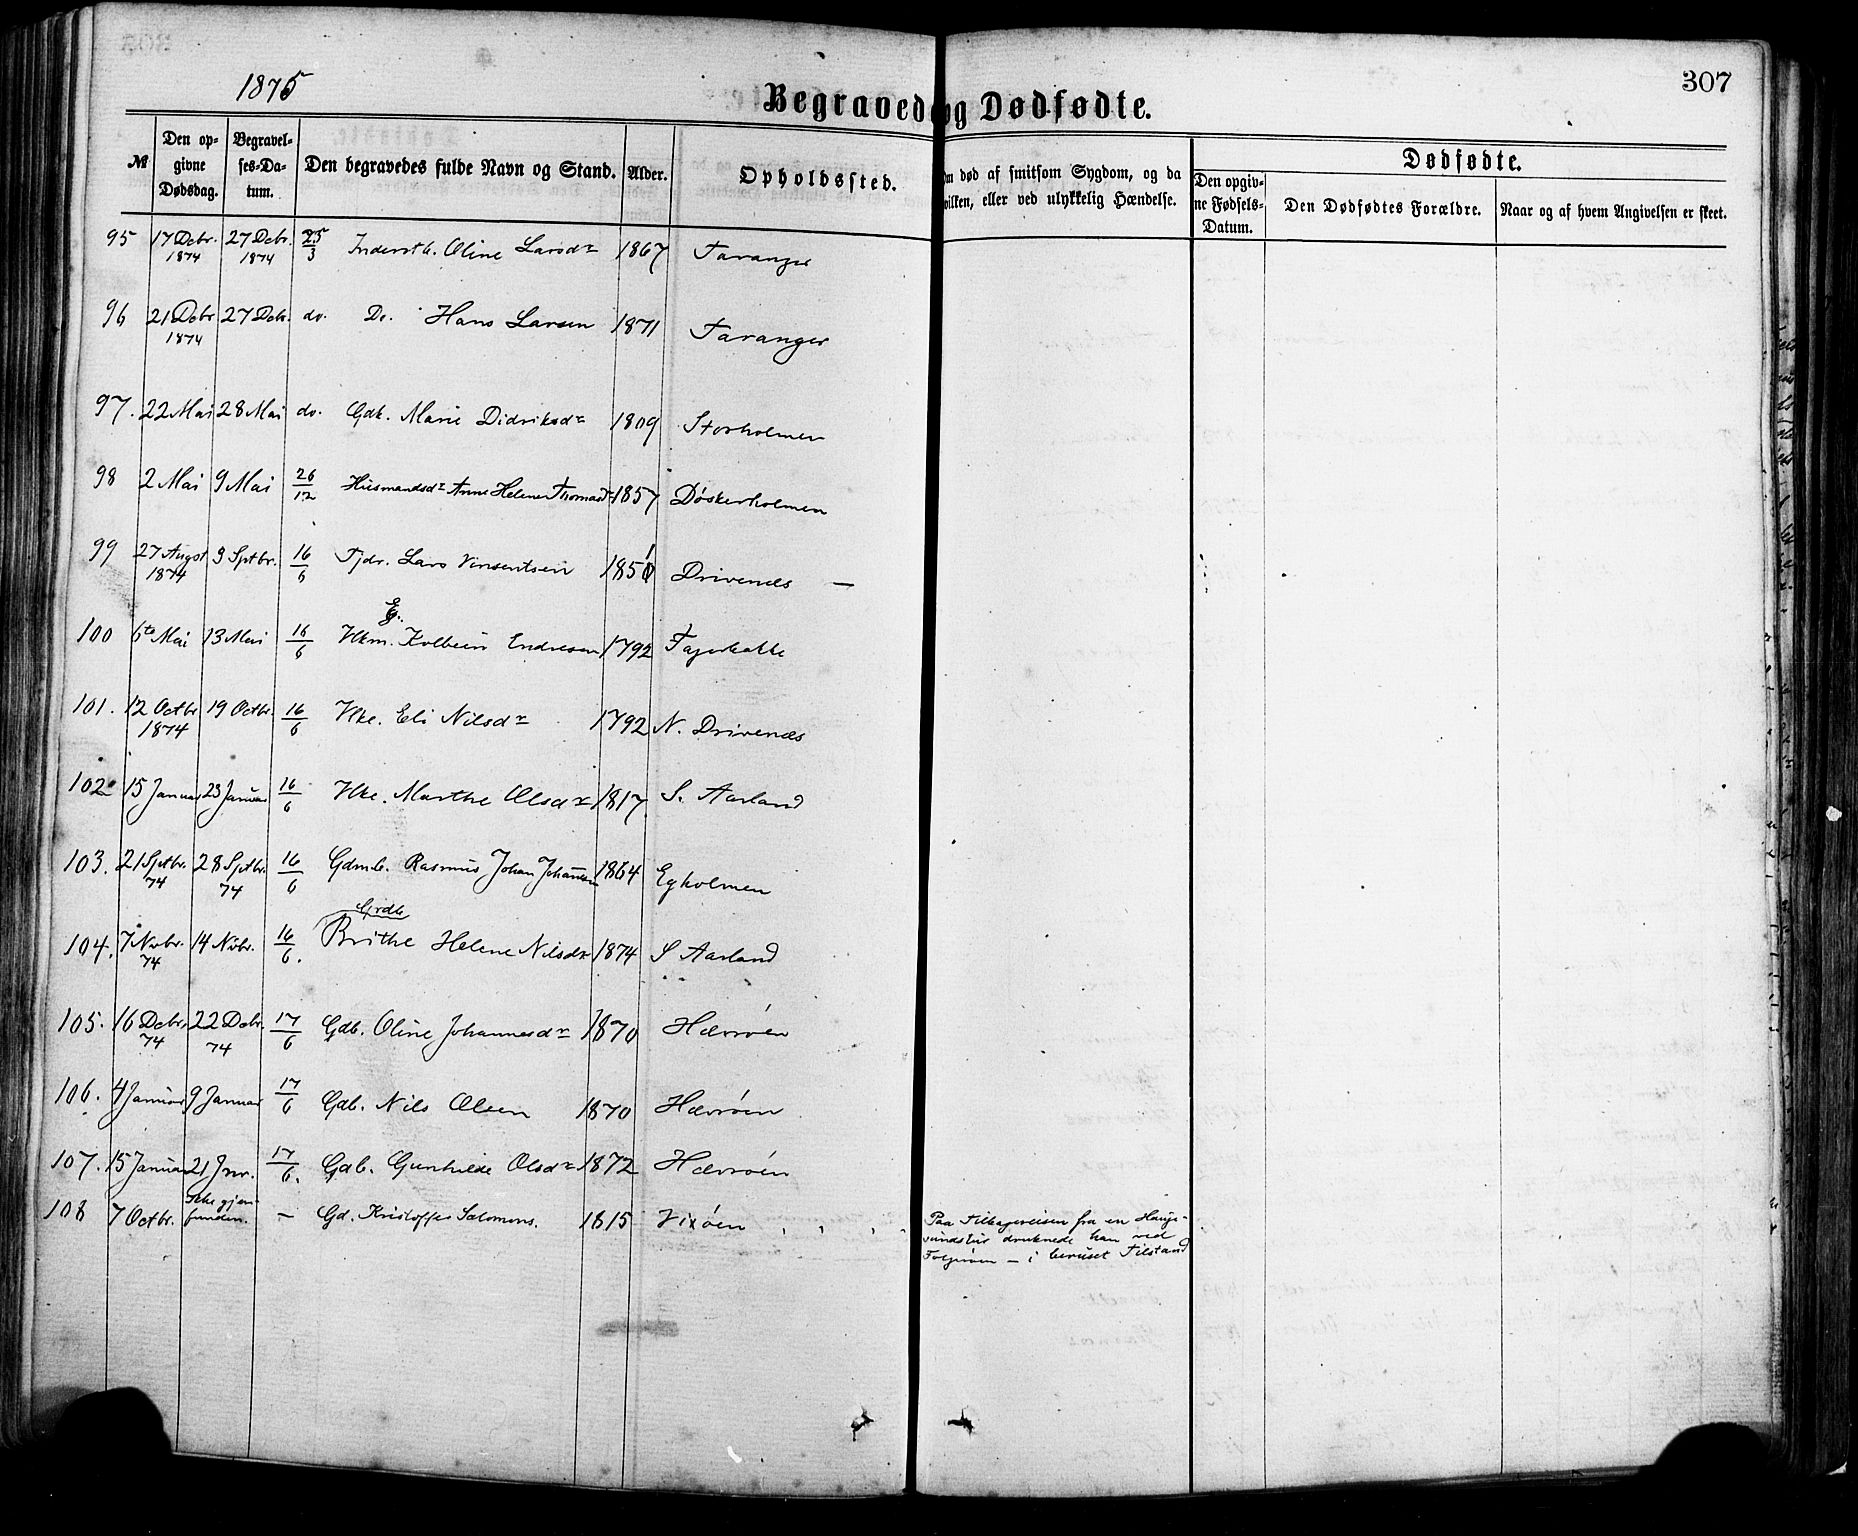 1875
307
Begravede og Dødfødte.
№
Den opgivne Dødsdag.
Begravelses-Datum.
Den begravedes fulde Navn og Stand.
Alder.
Opholdssted.
Om død af smitsom Sygdom, og da hvilken, eller ved ulykkelig Hændelse.
Dødfødte.
Den opgivne Fødsels-Datum.
Den Dødfødtes Forældre.
Naar og af hvem Angivelsen er skeet.
95 17 Decbr. 1874 27 Decbr. 1874 25/3 Inderstb. Oline Larsdr 1867 Taranger
96 21 Decbr 1874 27 Decbr. do. Do. Hans Larsen 1871 Taranger
97. 22 Mai 28 Mai do. Gdk. Marie Didriksdr 1809 Storholmen
98 2 Mai 9 Mai 26/12 Husmandsdr Anne Helene Thomasdr 1857 Døskerholmen
99 27 Augst 1874 3 Sptbr. 16/6 Fjdr. Lars Vinsentsen Drivenæs —
100 6te Mai 13 Mai 16/6 Hkm. Kolbein Endresen 1792 Fagerbakke
101. 12 Octbr 1874 19 Octbr. 16/6 Hke. Eli Nilsdr 1792 N. Drivenæs
102 15 Januar 23 Januar 16/6 Hke. Marthe Olsdr 1817 S. Aarland
103. 21 Sptbr. 74 28 Sptbr. 74 16/6 Gdmb. Rasmus Johan Johannsen 1864 Egholmen
Grdb
104. 7 Nvbr. 74 14 Nvbr. 16/6. Brithe Helene Nilsdr 1874 S Aarland
105. 16 Decbr. 74 22 Decbr. 74 17/6 Gdb. Oline Johannesdr 1870 Hævrøen
106. 4 Januar 9 Januar 17/6 Gdb. Nils Olsen 1870 Hævrøen
107. 15 Januar 21 Jnr. 17/6. Gdb. Gunhilde Olsdr 1872 Hævrøen
108 7 Octbr. Ikke gjenfunden. — Gd. Kristoffer Salomons. 1815 Vixøen
Paa Tilbagereisen fra en Hauge-
sundstur druknede han ved
— i beruset Tilstand